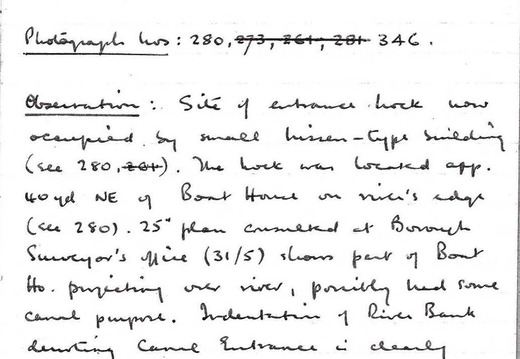 Photograph nos: 280, 273, 261, 281 346.
Observation: Site of entrance lock now
occupied by small nissen-type building
(see 280, 261). The lock was located app.
40yd NE of Boat House on river's edge
(see 280). 25" plan consulted at Borough
Surveyor's office (31/5) shows part of Boat
Ho. projecting over river, possibly had some
canal purpose. Indentation of River Bank
denoting Canal Entrance is clearly